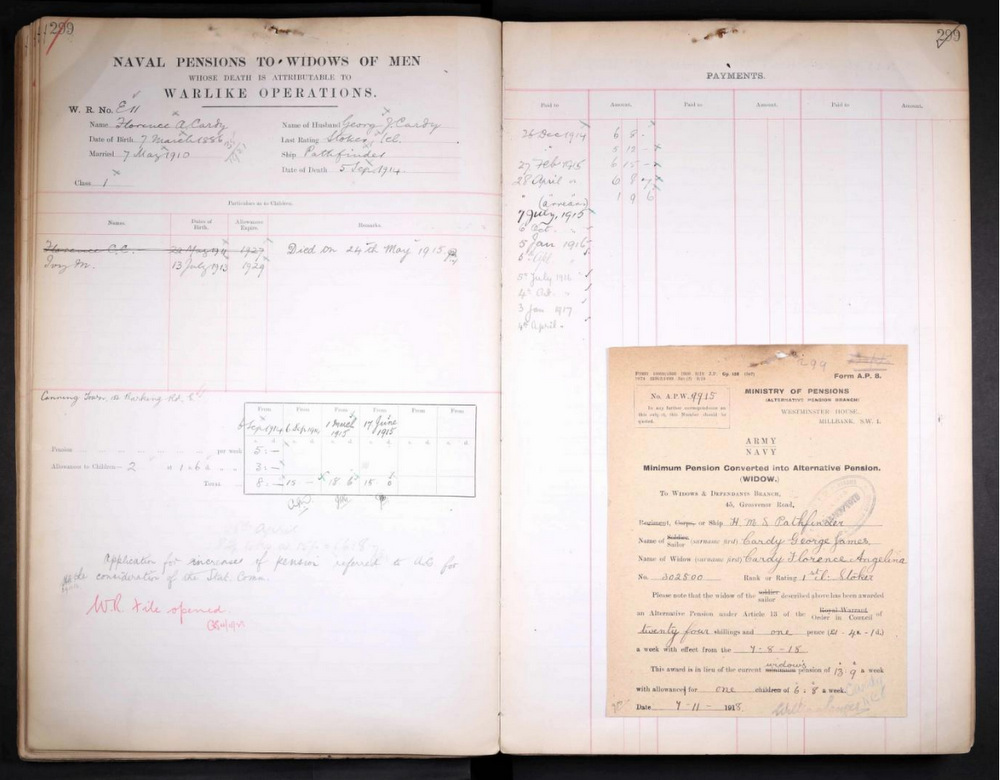 299
NAVAL PENSIONS TO WIDOWS OF MEN
WHOSE DEATH IS ATTRIBUTABLE TO
WARLIKE OPERATIONS.
W. R. No. E 11
Name Florence A Cardy
Date of Birth. 7 March 1886
Married 7 May 1910
Class 1
Name of Husband George J Cardy
Last Rating Stoker 1 Cl.
Ship Pathfinder
Date of Death 5 Sep. 1914
Particulars as to Children.
Names. Dates of Birth. Allowance Expire. Remarks.
Florence C.C. 23 May 1911 1927 Died on 24th May 1915.
Ivy M. 13 July 1913 1929
Canning Town, Barking Rd, E
From From From From From From
6 Sep. 1914 1 March 1915 17 June 1915
s. d. s. d. s. d. s. d. s. d. s. d.
Pension per week 5 : -
Allowance to Children - 2 @ 1 : 6 3 : -
TOTAL 8 : - 15 - 18 6
Application for increase of pension referred to A.C. for
the consideration of the Stat. Comm.
W.R. File opened.
299
PAYMENTS.
Paid to Amount. Paid to Amount. Paid to Amount.
26 Dec 1914 6 8 -
5 12 -
27 Feb 1915 6 15 -
28 April " 6 8
(arrears) 1 9 6
7 July, 1915
6 Oct. "
5 Jan 1916
5th July 1916
4th Oct. "
3 Jan 1917
4th April "
299
Form A.P. 8.
No. A.P.W. 9915
In any further correspondence on this subject, this Number should be quoted.
MINISTRY OF PENSIONS
(ALTERNATIVE PENSION BRANCH)
WESTMINSTER HOUSE,
MILLBANK, S.W. 1.
ARMY
NAVY
Minimum Pension Converted into Alternative Pension.
(WIDOW.)
To WIDOWS & DEPENDANTS BRANCH,
45, Grosvenor Road.
Regiment, Corps, or Ship H M S Pathfinder
Name of Soldier Sailor (surname first) Cardy George James
Name of Widow (surname first) Cardy Florence Angelina
No. 302500 Rank or Rating 1st Cl: Stoker
Please note that the widow of the soldier sailor described above has been awarded
an Alternative Pension under Article 13 of the Royal Warrant Order in Council of
twenty four shillings and one pence (£1 - 4s - 1d.)
a week with effect from the 7 - 8 - 18
This award is in lieu of the current minimum widows pension of 13 : 9 a week
with allowances for one children of 6 : 8 a week.
Date 7 - 11 - 1918.